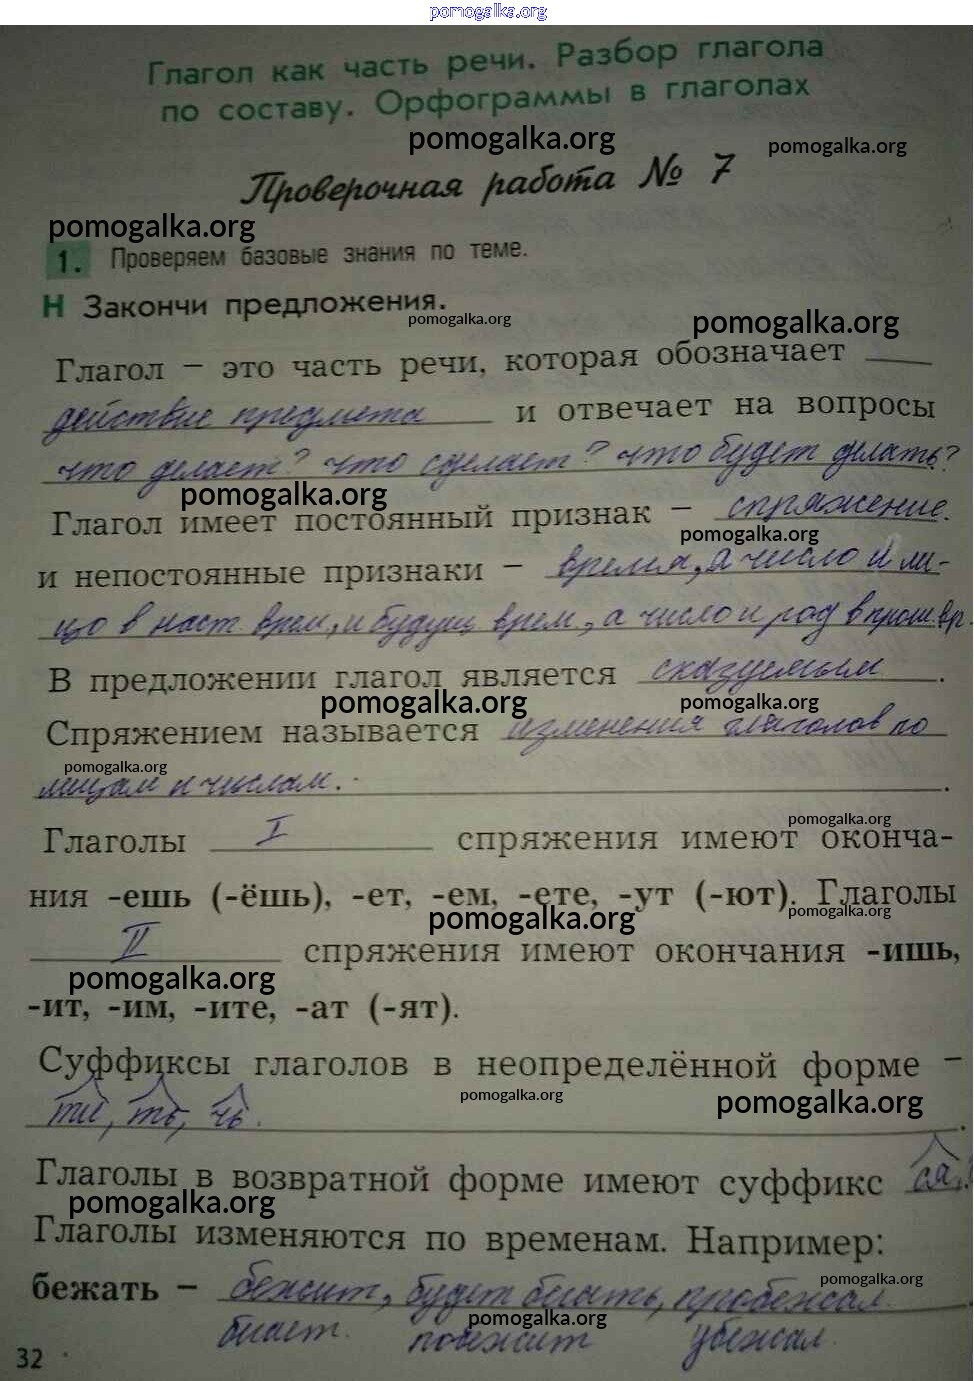 pomogalka.org
Глагол как часть речи. Разбор глагола
по составу. Орфограммы в глаголах
pomogalka.org
pomogalka.org
Проверочная работа № 7
pomogalka.org
1. Проверяем базовые знания по теме.
Н Закончи предложения.
pomogalka.org
pomogalka.org
Глагол – это часть речи, которая обозначает
действие предмета и отвечает на вопросы
что делает? что сделает? что будет делать?
pomogalka.org
Глагол имеет постоянный признак – спряжение.
pomogalka.org
и непостоянные признаки – время, а число и ли-
цо в наст врем, и будущ врем, а число и род в прош.вр.
В предложении глагол является сказуемым.
pomogalka.org
pomogalka.org
Спряжением называется изменения глаголов по
pomogalka.org
лицам и числам.
pomogalka.org
Глаголы I спряжения имеют оконча-
ния -ешь (-ёшь), -ет, -ем, -ете, -ут (-ют). Глаголы
pomogalka.org
pomogalka.org
II спряжения имеют окончания -ишь,
pomogalka.org
-ит, -им, -ите, -ат (-ят).
Суффиксы глаголов в неопределённой форме –
pomogalka.org
pomogalka.org
ти, ть, чь.
Глаголы в возвратной форме имеют суффикс ся.
pomogalka.org
Глаголы изменяются по временам. Например:
pomogalka.org
бежать – бежит, будет бежать, пробежал.
pomogalka.org
побежит убежал.
32